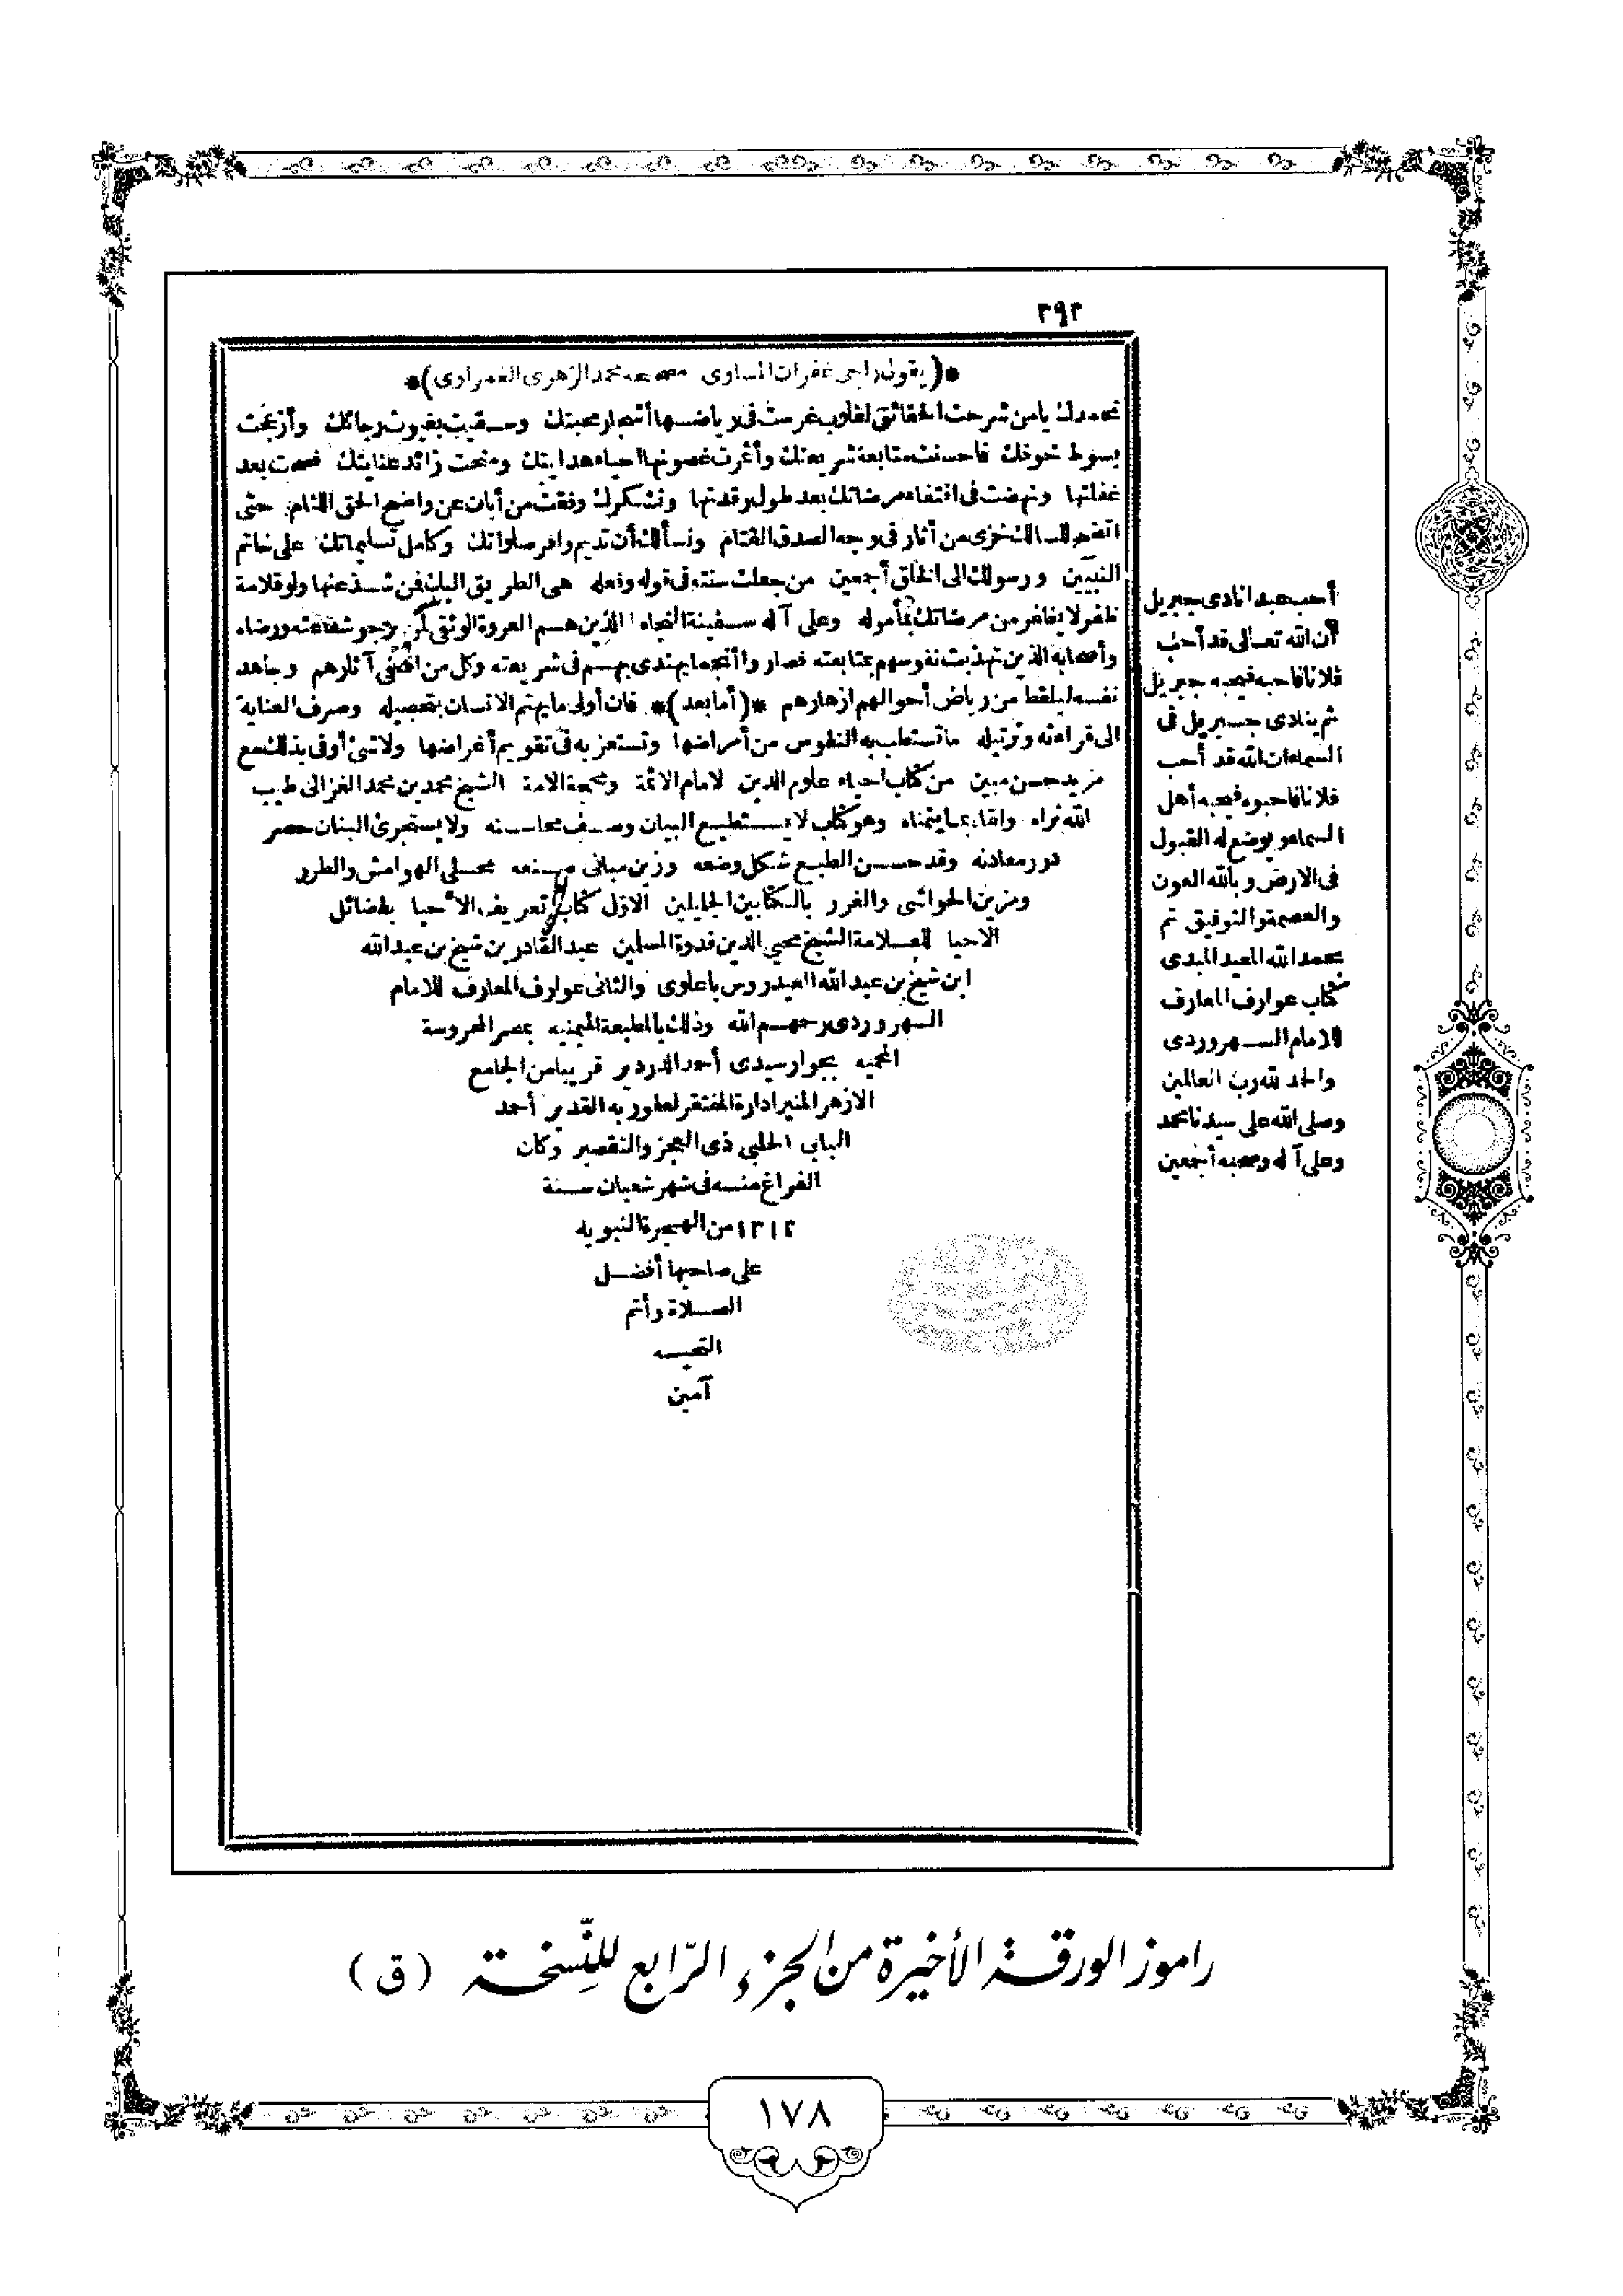 ٣٩٢
*(يقول راجى غفران المساوى مصححه محمد الزهرى الغمراوى)*
نحمدك يا من شرحت الحقائق لقلوب غرست فى رياضها أشجار محبتك وسقيت بغيوث رجائك وأزعجت
بسوط خوفك فأحسنت متابعة شريعتك وأثمرت غصونها احياء هدايتك ومنحت زائد عنايتك فصحت بعد
غفلتها ونهضت فى اقتفاء مرضاتك بعد طول رقدتها ونشكرك وفقت من أبان عن واضح الحق اللثام حتى
اتضح للسالك خزى من أثار فى وجه الصدق القتام ونسألك أن تديم وافر صلواتك وكامل تسليماتك على خاتم
النبيين ورسولك الى الخلق أجمعين من جعلت سنته فى قوله وفعله هى الطريق اليك فمن شذ عنها ولو قلامة
ظفر لا يظفر من مرضاتك بمأموله وعلى آله سفينة النجاه الذين هم العروة الوثقى لمن يرجو شفاعته ورضاه
وأصحابه الذين تهذبت نفوسهم بمتابعته فصاروا أنجما يهتدى بهم فى شريعته وكل من اقتفى آثارهم وجاهد
نفسه ليلقط من رياض أحوالهم ازهارهم *(أما بعد)* فان أولى ما يهتم الانسان بتحصيله وصرف العناية
الى قراءته وترتيله ما تستطب به النفوس من أمراضها وتستعز به فى تقويم أغراضها ولا شئ أوفى بذلك مع
مزيد حسن مبين من كتاب احياء علوم الدين لامام الائمة وحجة الامة الشيخ محمد بن محمد الغزالى طيب
الله ثراه ولقاه بما يتمناه وهو كتاب لا يستطيع البيان وصف محاسنه ولا يستجرئ البنان حصر
درر معادنه وقد حسن الطبع شكل وضعه وزين مبانى صنعه محلى الهوامش والطرر
ومزين الحواشى والغرر بالكتابين الجليلين الاول كتاب تعريف الاحيا بفضائل
الاحيا للعلامة الشيخ محيى الدين قدوة المسلمين عبد القادر بن شيخ بن عبد الله
ابن شيخ بن عبد الله العيدروس باعلوى والثانى عوارف المعارف للامام
السهروردى رحمهم الله وذلك بالمطبعة الميمنيه بمصر المحروسة
المحميه بجوار سيدى أحمد الدردير قريبا من الجامع
الازهر المنير ادارة المفتقر لعفو ربه القدير أحمد
البابى الحلبى ذى العجز والتقصير وكان
الفراغ منه فى شهر شعبان سنة
١٣١٢ من الهجرة النبويه
على صاحبها أفضل
الصلاة وأتم
التحيه
آمين
أحب عبدا نادى جبريل
أن الله تعالى قد أحب
فلانا فاحبه فيحبه جبريل
ثم ينادى جبريل فى
السماء ان الله قد أحب
فلانا فاحبوه فيحبه أهل
السماء ويوضع له القبول
فى الارض وبالله العون
والعصمة والتوفيق تم
بحمد الله المعيد المبدى
كتاب عوارف المعارف
للامام السهروردى
والحمد لله رب العالمين
وصلى الله على سيدنا محمد
وعلى آله وصحبه أجمعين
راموز الورقة الأخيرة من الجزء الرّابع للنّسخة (ق)
١٧٨